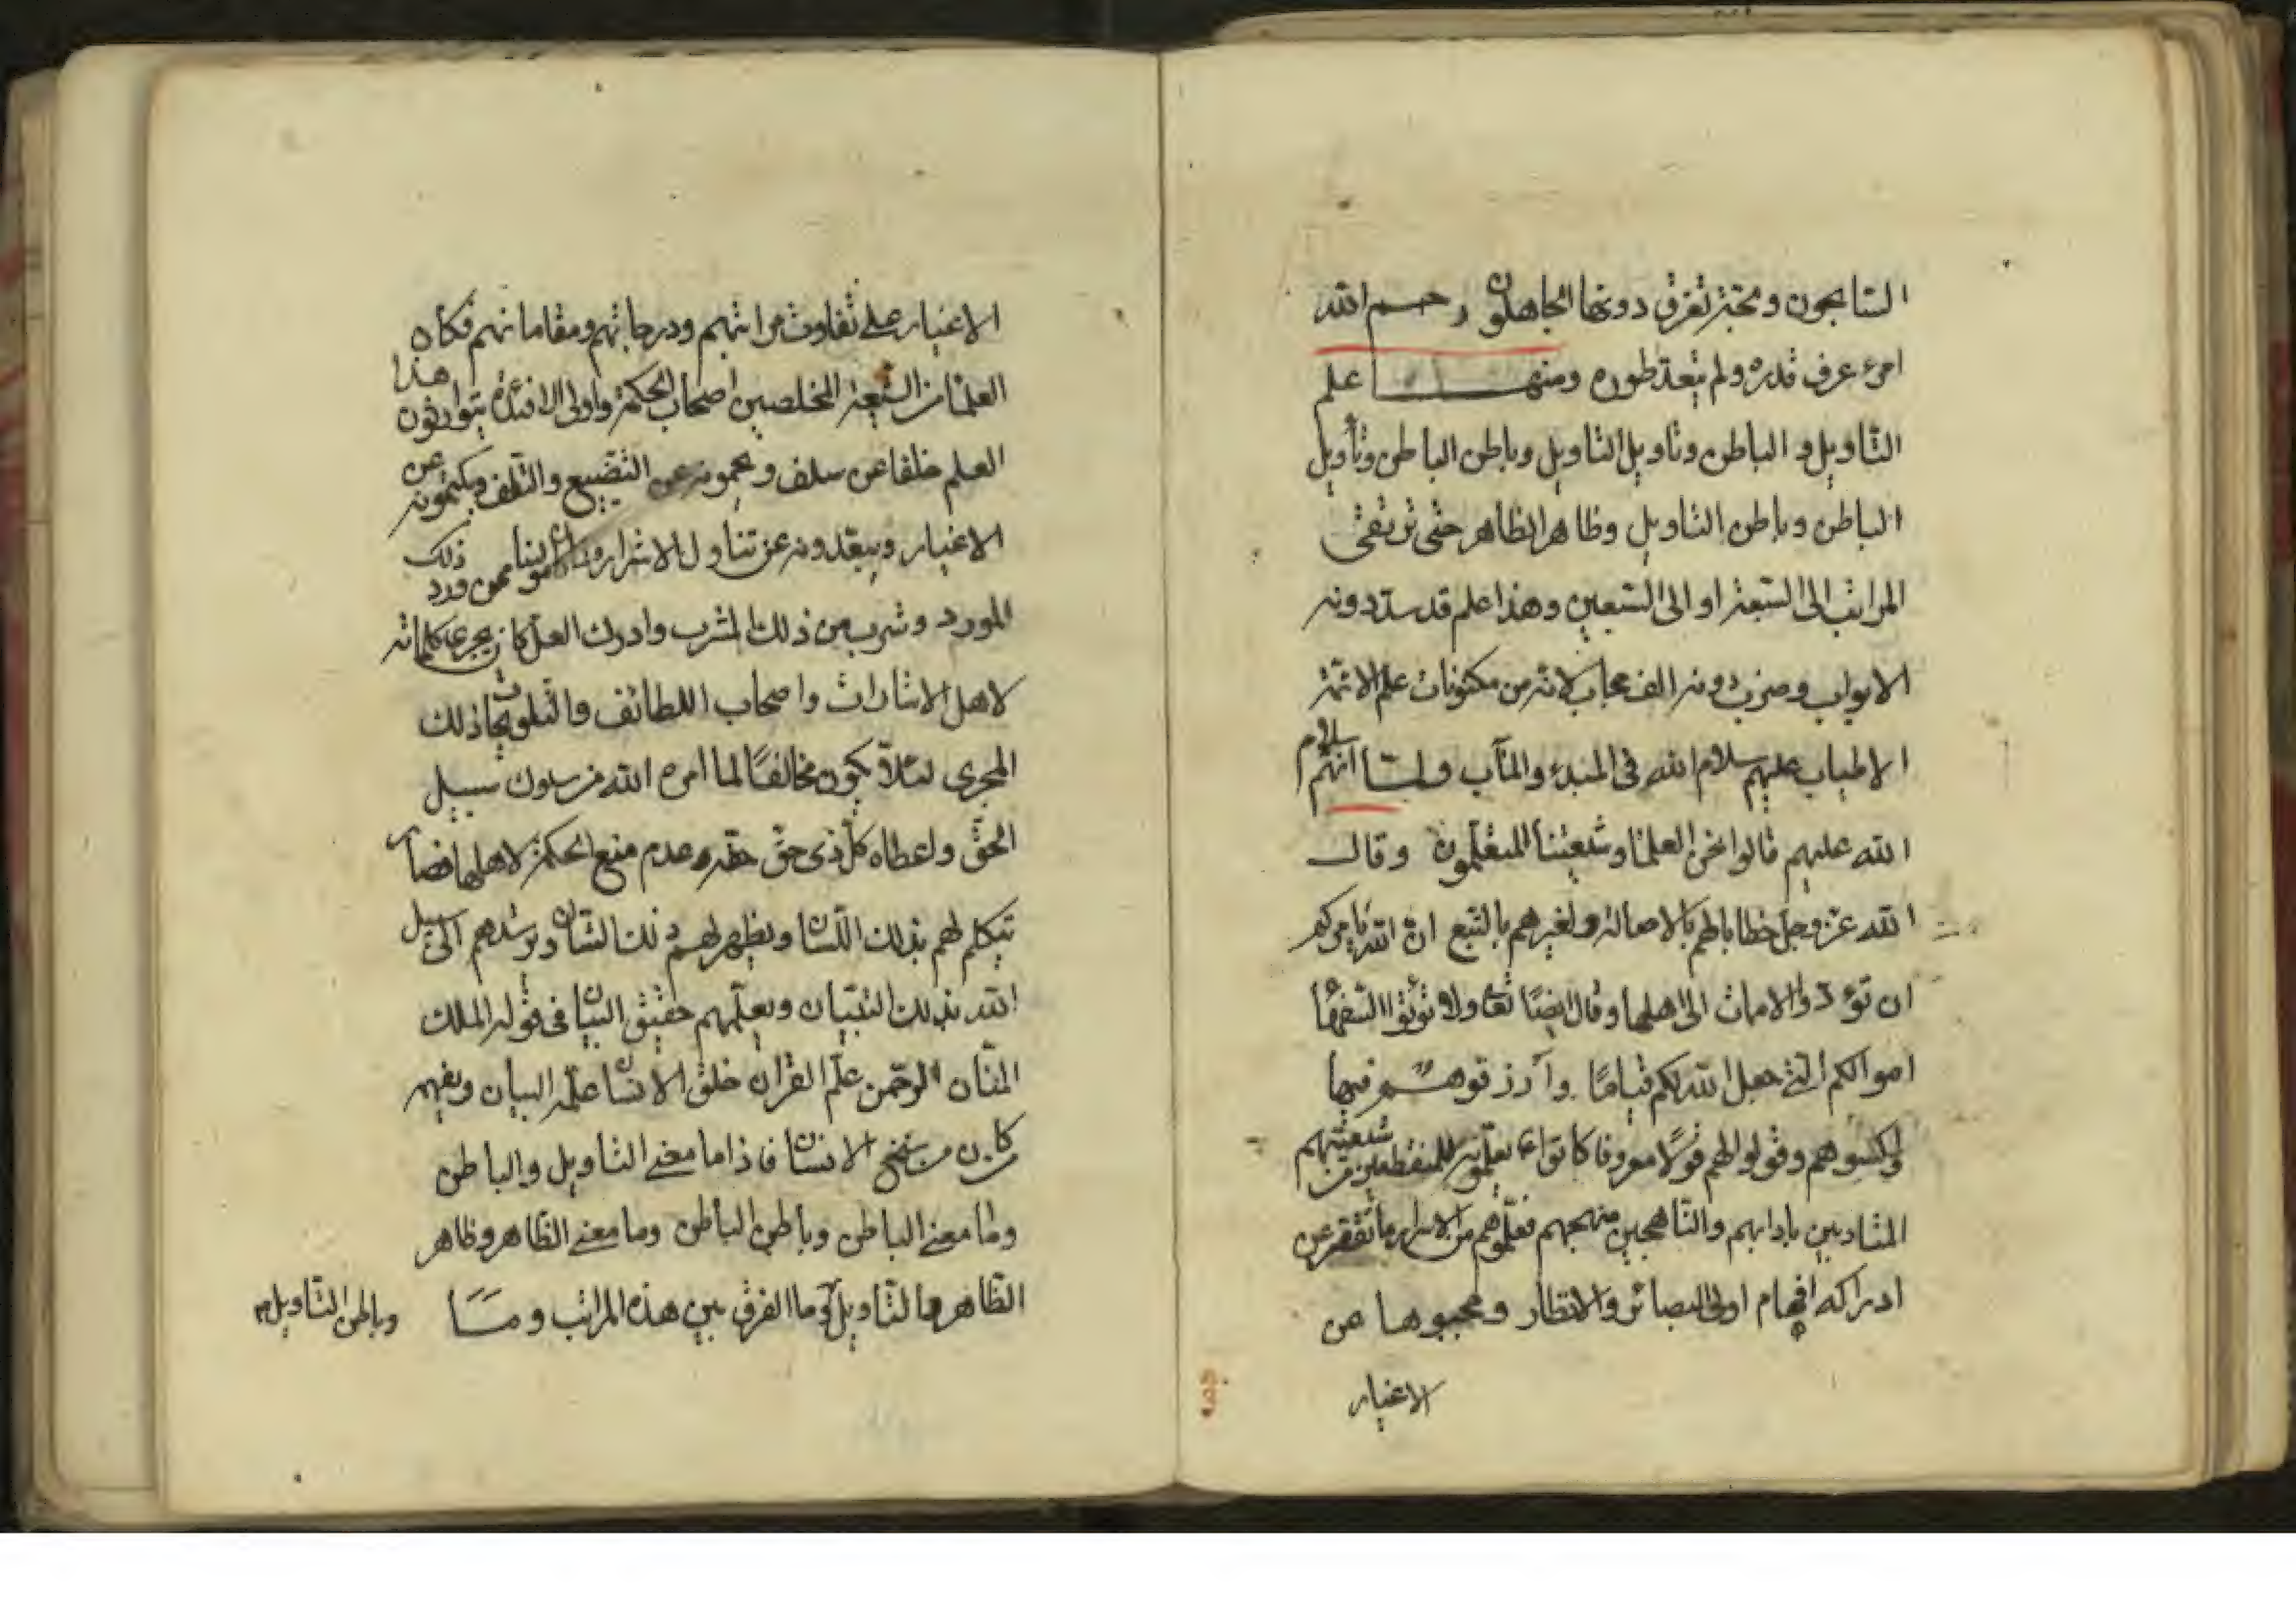 السابحون ولجة تغرق دونها الجاهلون رحم الله
امرء عرف قدره ولم يتعد طوره ومنها علم
التاويل و الباطن وتاويل التاويل وباطن الباطن وتأويل
الباطن وباطن التاويل وظاهر الظاهر حتى ترتقى
المراتب الى السبعة او الى السبعين وهذا علم قد سد دونه
الابواب وضرب دونه الف حجاب لانه من مكنونات علم الائمة
الاطياب عليهم سلام الله فى المبدء والمآب ولما انهم سلام
الله عليهم قالوا نحن العلما وشيعتنا المتعلمون وقال
الله عز وجل خطابا لهم بالاصالة ولغيرهم بالتبع ان الله يامركم
ان تؤدوا الامانات الى اهلها وقال ايضا تعا ولا تؤتوا السفها
اموالكم التى جعل الله لكم قياما وارزقوهم فيها
واكسوهم وقولوا لهم قولا معروفا كانوا ع يعلمون المنقطعين من شيعتهم
المتادبين بادابهم والناهجين منهجهم فعلموهم من الاسرار ما تقصر عن
ادراكه افهام اولى البصائر والانظار وحجبوها عن
الاغيار
الاغيار على تفاوت مراتبهم ودرجاتهم ومقاماتهم فكان هذا
العلما من الشيعة المخلصين اصحاب الحكمة واولى الافئدة يتوارثون
العلم خلفا عن سلف ويحمونه عن التضييع والتلف ويكتمونه عن
الاغيار ويبعدونه عن تناول الاشرار ممن ورد ذلك
المورد وشرب من ذلك المشرب وادرك العل كان يجرى كلماته
لاهل الاشارات واصحاب اللطائف والتلويحات ذلك
المجرى لئلا يكون مخالفا لما امره الله من سلوك سبيل
الحق واعطاء كل ذى حق حقه وعدم منع الحكمة لاهلها فصار
يتكلم لهم بذلك اللسان ويظهر لهم ذلك الشان ويرشدهم الى سبيل
الله بذلك التبيان ويعلمهم حقيق البيان فى قوله الملك
المنان الرحمن علم القران خلق الانسان علمه البيان ويفهم
كل من سنخ الانسان فاذا ما معنى التاويل والباطن
وما معنى الباطن وباطن الباطن وما معنى الظاهر وظاهر
الظاهر والتاويل وما الفرق بين هذه المراتب وما
وباطن التاويل